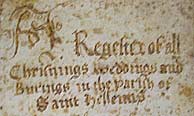 A Regester of all
Christnings Weddings and
Buriings in the Parish of
Saint Hellens